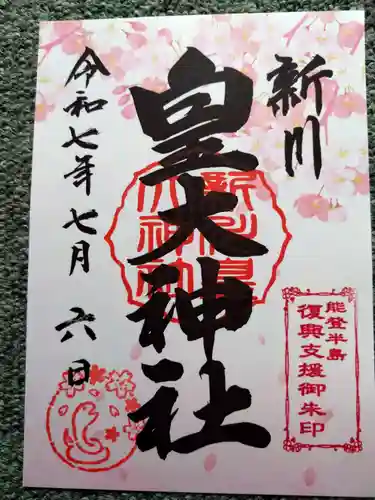 新川
能登半島
復興支援御朱印
皇大神社
新川皇
大神社
令和七年七月六日